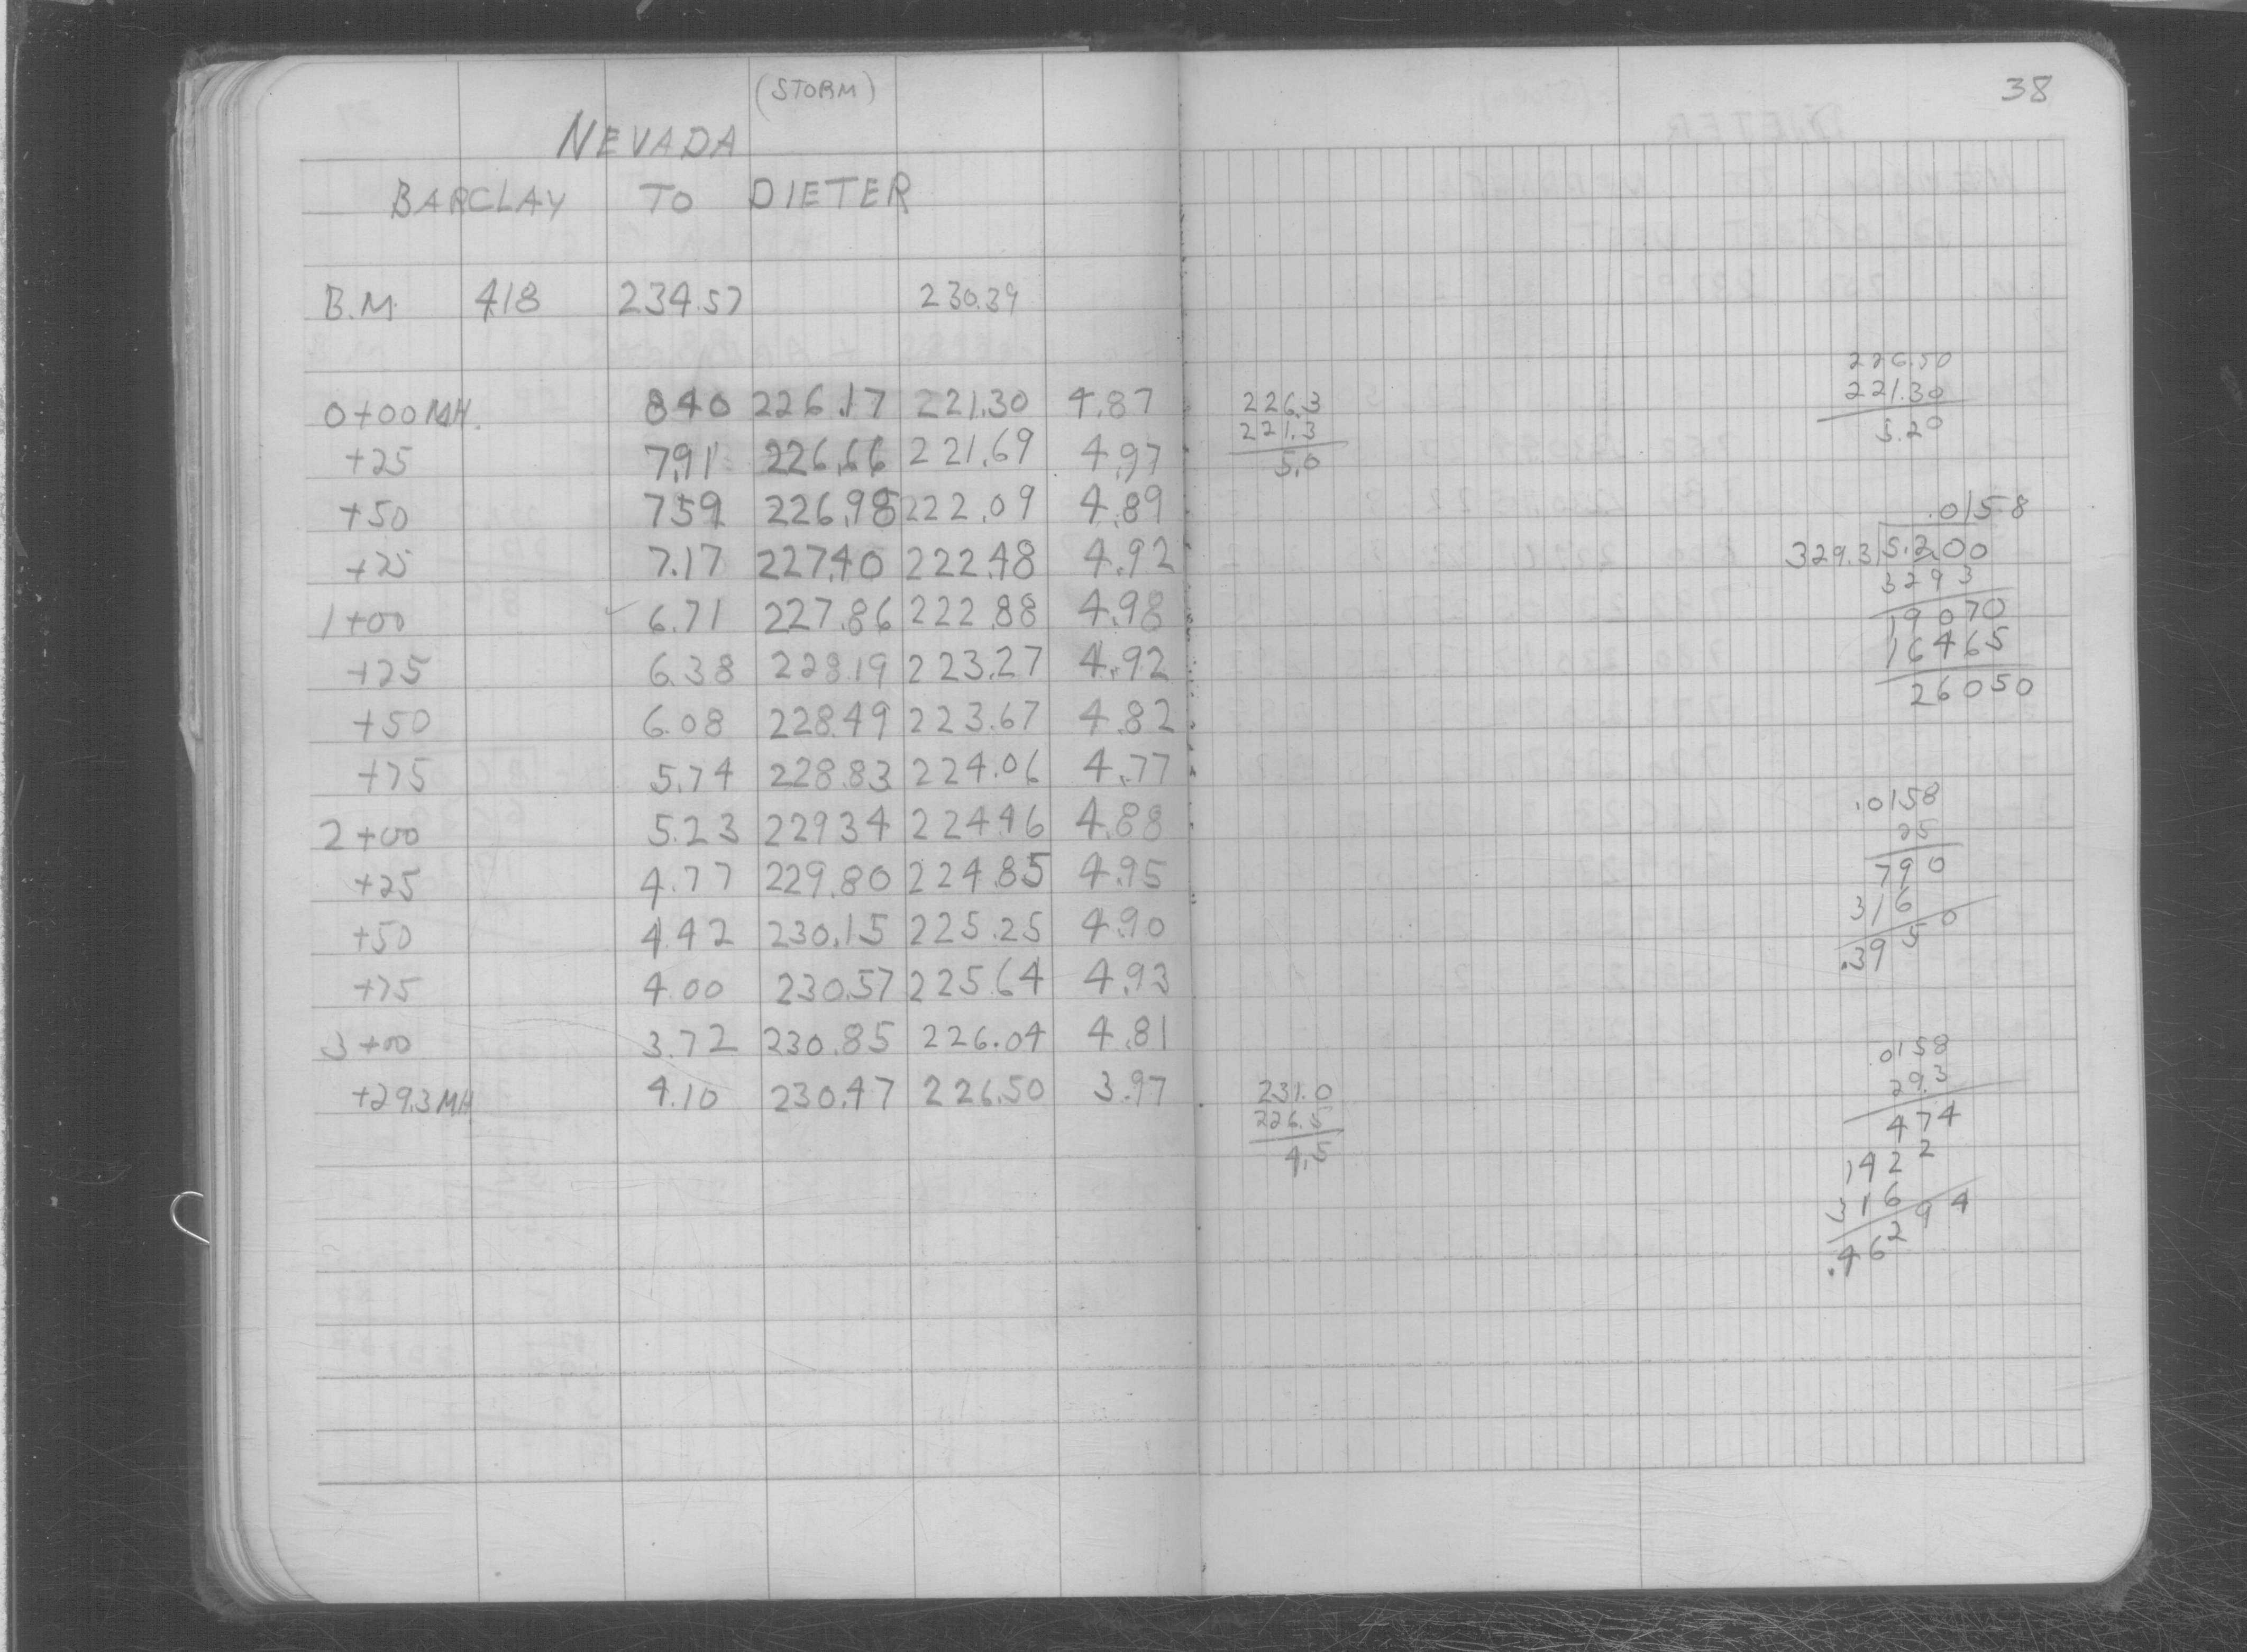 (STORM)
NEVADA
BARCLAY TO DIETER
B.M. 4.18 234.57 230.39
0+00 MH. 8.40 226.17 221.30 4.87
+25 7.91 226.66 221.69 4.97
+50 7.59 226.98 222.09 4.89
+25 7.17 227.40 222.48 4.92
1+00 6.71 227.86 222.88 4.98
+25 6.38 228.19 223.27 4.92
+50 6.08 228.49 223.67 4.82
+75 5.74 228.83 224.06 4.77
2+00 5.23 229.34 224.46 4.88
+25 4.77 229.80 224.85 4.95
+50 4.42 230.15 225.25 4.90
+75 4.00 230.57 225.64 4.93
3+00 3.72 230.85 226.04 4.81
+29.3 MH 4.10 230.47 226.50 3.97
38
226.3
221.3
5.0
231.0
226.5
4.5
226.50
221.30
5.20
.0158
329.3 5.200
3293
19070
16465
26050
.0158
25
790
316
.3950
.0158
29.3
474
1422
316
.46294